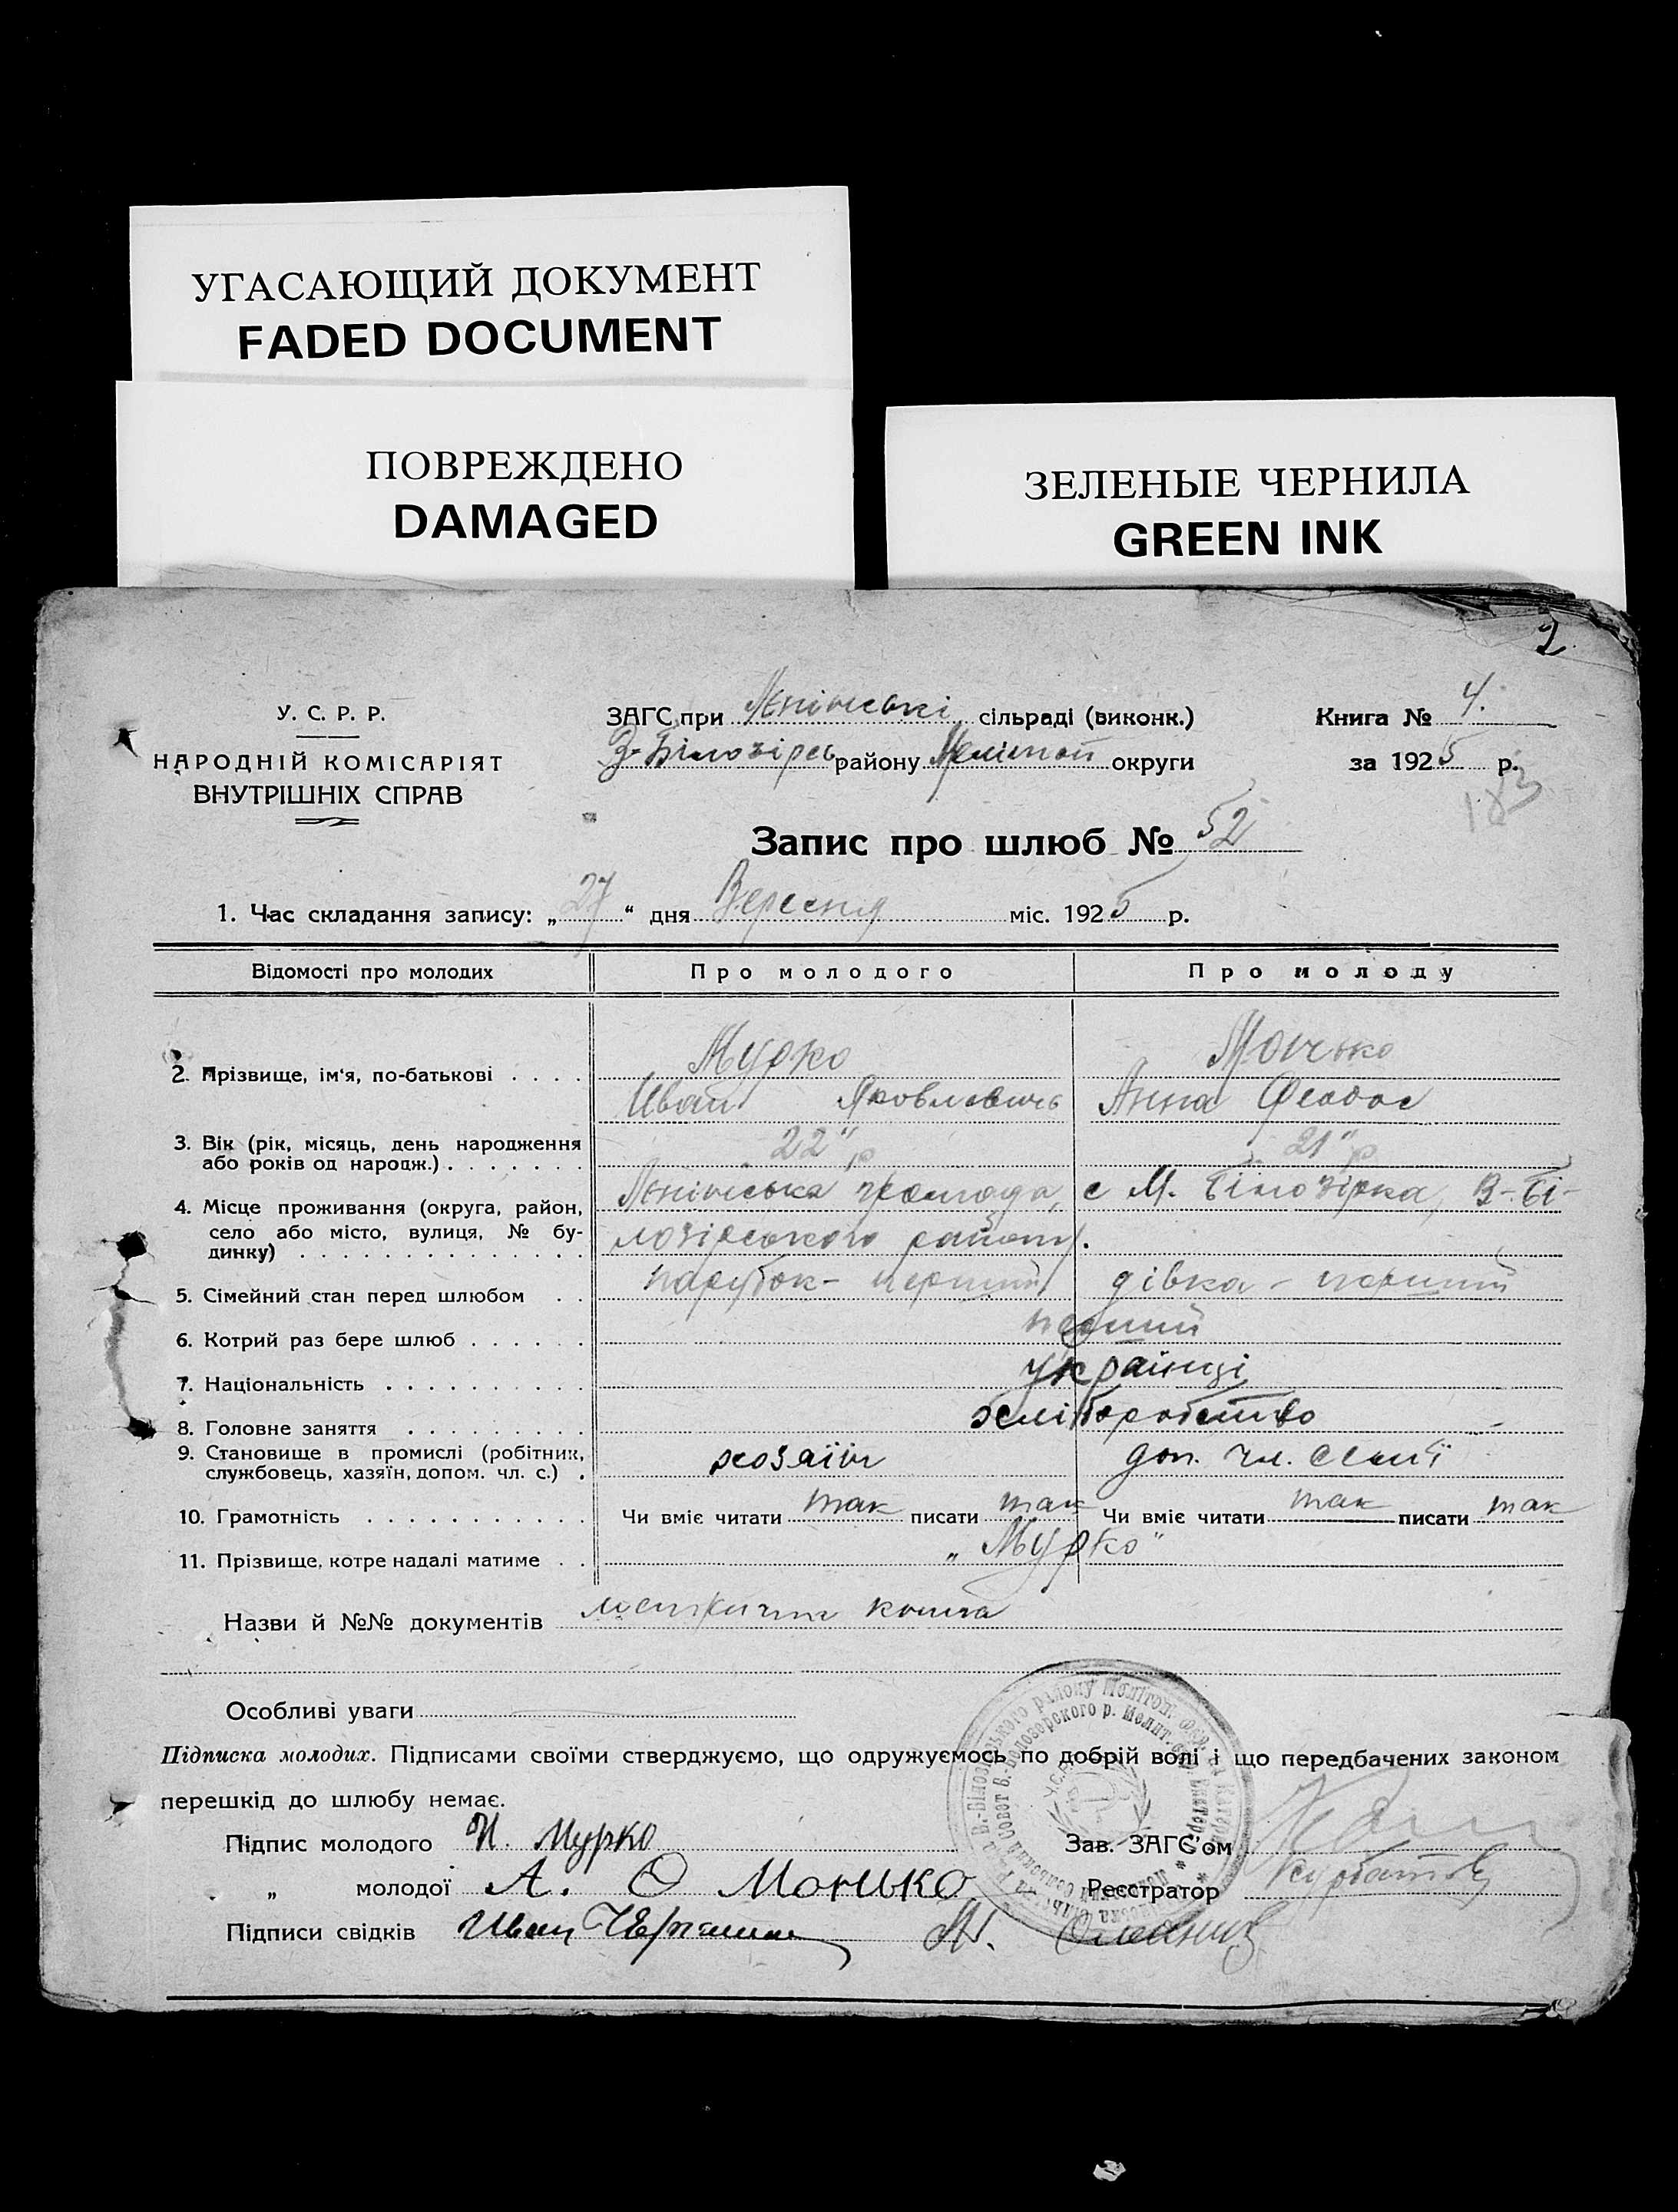 УГАСАЮЩИЙ ДОКУМЕНТ
FADED DOCUMENT
ПОВРЕЖДЕНО
DAMAGED
ЗЕЛЕНЫЕ ЧЕРНИЛА
GREEN INK
2
У. С. Р. Р.
НАРОДНІЙ КОМІСАРІЯТ
ВНУТРІШНІХ СПРАВ
ЗАГС при Ленінській сільраді (виконк.)
В-Білозірсь району Мелітоп округи
Книга № 4.
за 1925 р.
183
Запис про шлюб № 52
1. Час складання запису: „27“ дня Вересня міс. 1925 р.
Відомості про молодих Про молодого Про молоду
2. Прізвище, ім'я, по-батькові . . . . Мурко Монько
Иван Яковлевичь Анна Феодос
3. Вік (рік, місяць, день народження або років од народж.) . . . . . . . 22 р 21 р
4. Місце проживання (округа, район, село або місто, вулиця, № будинку) . . . . Ленінська громада, с М. Білозірка, В-Бі-
лозірського району.
5. Сімейний стан перед шлюбом . . парубок - перший дівка - перший
6. Котрий раз бере шлюб . . . . . . перший
7. Національність . . . . . . . . . . українці
8. Головне заняття . . . . . . . . . хліборобство
9. Становище в промислі (робітник, службовець, хазяїн, допом. чл. с.) . хозяїін доп. чл. семії
10. Грамотність . . . . . . . . . . . Чи вміє читати так писати так Чи вміє читати так писати так
11. Прізвище, котре надалі матиме . . „Мурко“
Назви й №№ документів книга
Особливі уваги
Підписка молодих. Підписами своїми стверджуємо, що одружуємось по добрій волі і що передбачених законом
перешкід до шлюбу немає.
Підпис молодого И. Мурко Зав. ЗАГС'ом
„ молодої А. Ф Монько Реєстратор
Підписи свідків Иван